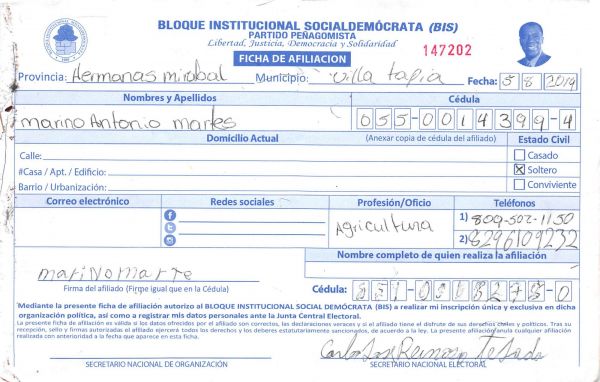 BLOQUE INSTITUCIONAL SOCIALDEMÓCRATA (BIS)
PARTIDO PEÑAGOMISTA
Libertad, Justicia, Democracia y Solidaridad
147202
FICHA DE AFILIACION
Provincia: Hermanas mirabal Municipio: villa tapia Fecha: 5 8 2019
Nombres y Apellidos Cédula
marino Antonio martes 055-0014399-4
Domicilio Actual (Anexar copia de cédula del afiliado) Estado Civil
Calle: Casado
#Casa / Apt. / Edificio: X Soltero
Barrio / Urbanización: Conviviente
Correo electrónico Redes sociales Profesión/Oficio Teléfonos
Agricultura 1) 809-502-1150
2) 8296109232
Nombre completo de quien realiza la afiliación
marinomarte
Firma del afiliado (Firme igual que en la Cédula) Cédula:
Mediante la presente ficha de afiliación autorizo al BLOQUE INSTITUCIONAL SOCIAL DEMÓCRATA (BIS) a realizar mi inscripción única y exclusiva en dicha
organización política, así como a registrar mis datos personales ante la Junta Central Electoral.
La presente ficha de afiliación es válida si los datos ofrecidos por el afiliado son correctos, las declaraciones veraces y si el afiliado tiene el disfrute de sus derechos civiles y políticos. Tras su
recepción, sello y firmas autorizadas el afiliado ejercerá todos los derechos y los deberes estatutariamente sancionados, de acuerdo a la ley. La presente afiliación anula cualquier afiliación
realizada con anterioridad a la fecha que aparece en esta ficha.
Carlos José Reinoso Tejada
SECRETARIO NACIONAL DE ORGANIZACIÓN SECRETARIO NACIONAL ELECTORAL